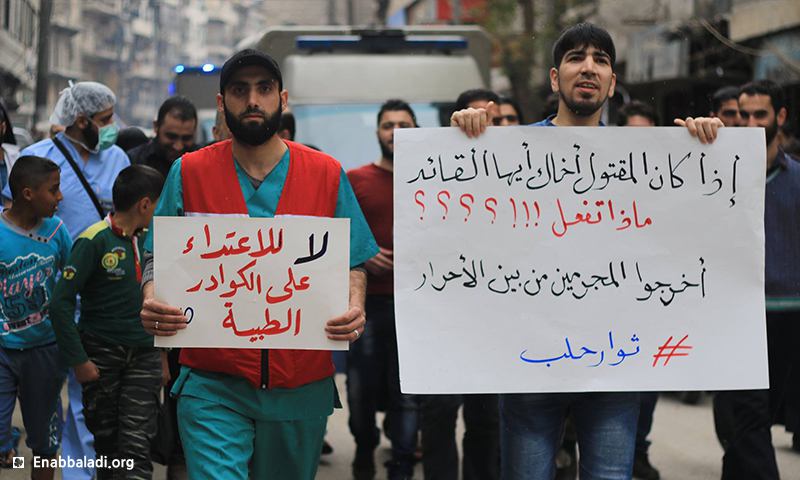 لا للاعتداء
على الكوادر
الطبية
إذا كان المقتول أخاك أيها القائد
ماذا تفعل !!! ؟ ؟ ؟ ؟
أخرجوا المجرمين من بين الأحرار
# ثوار حلب
Enabbaladi.org